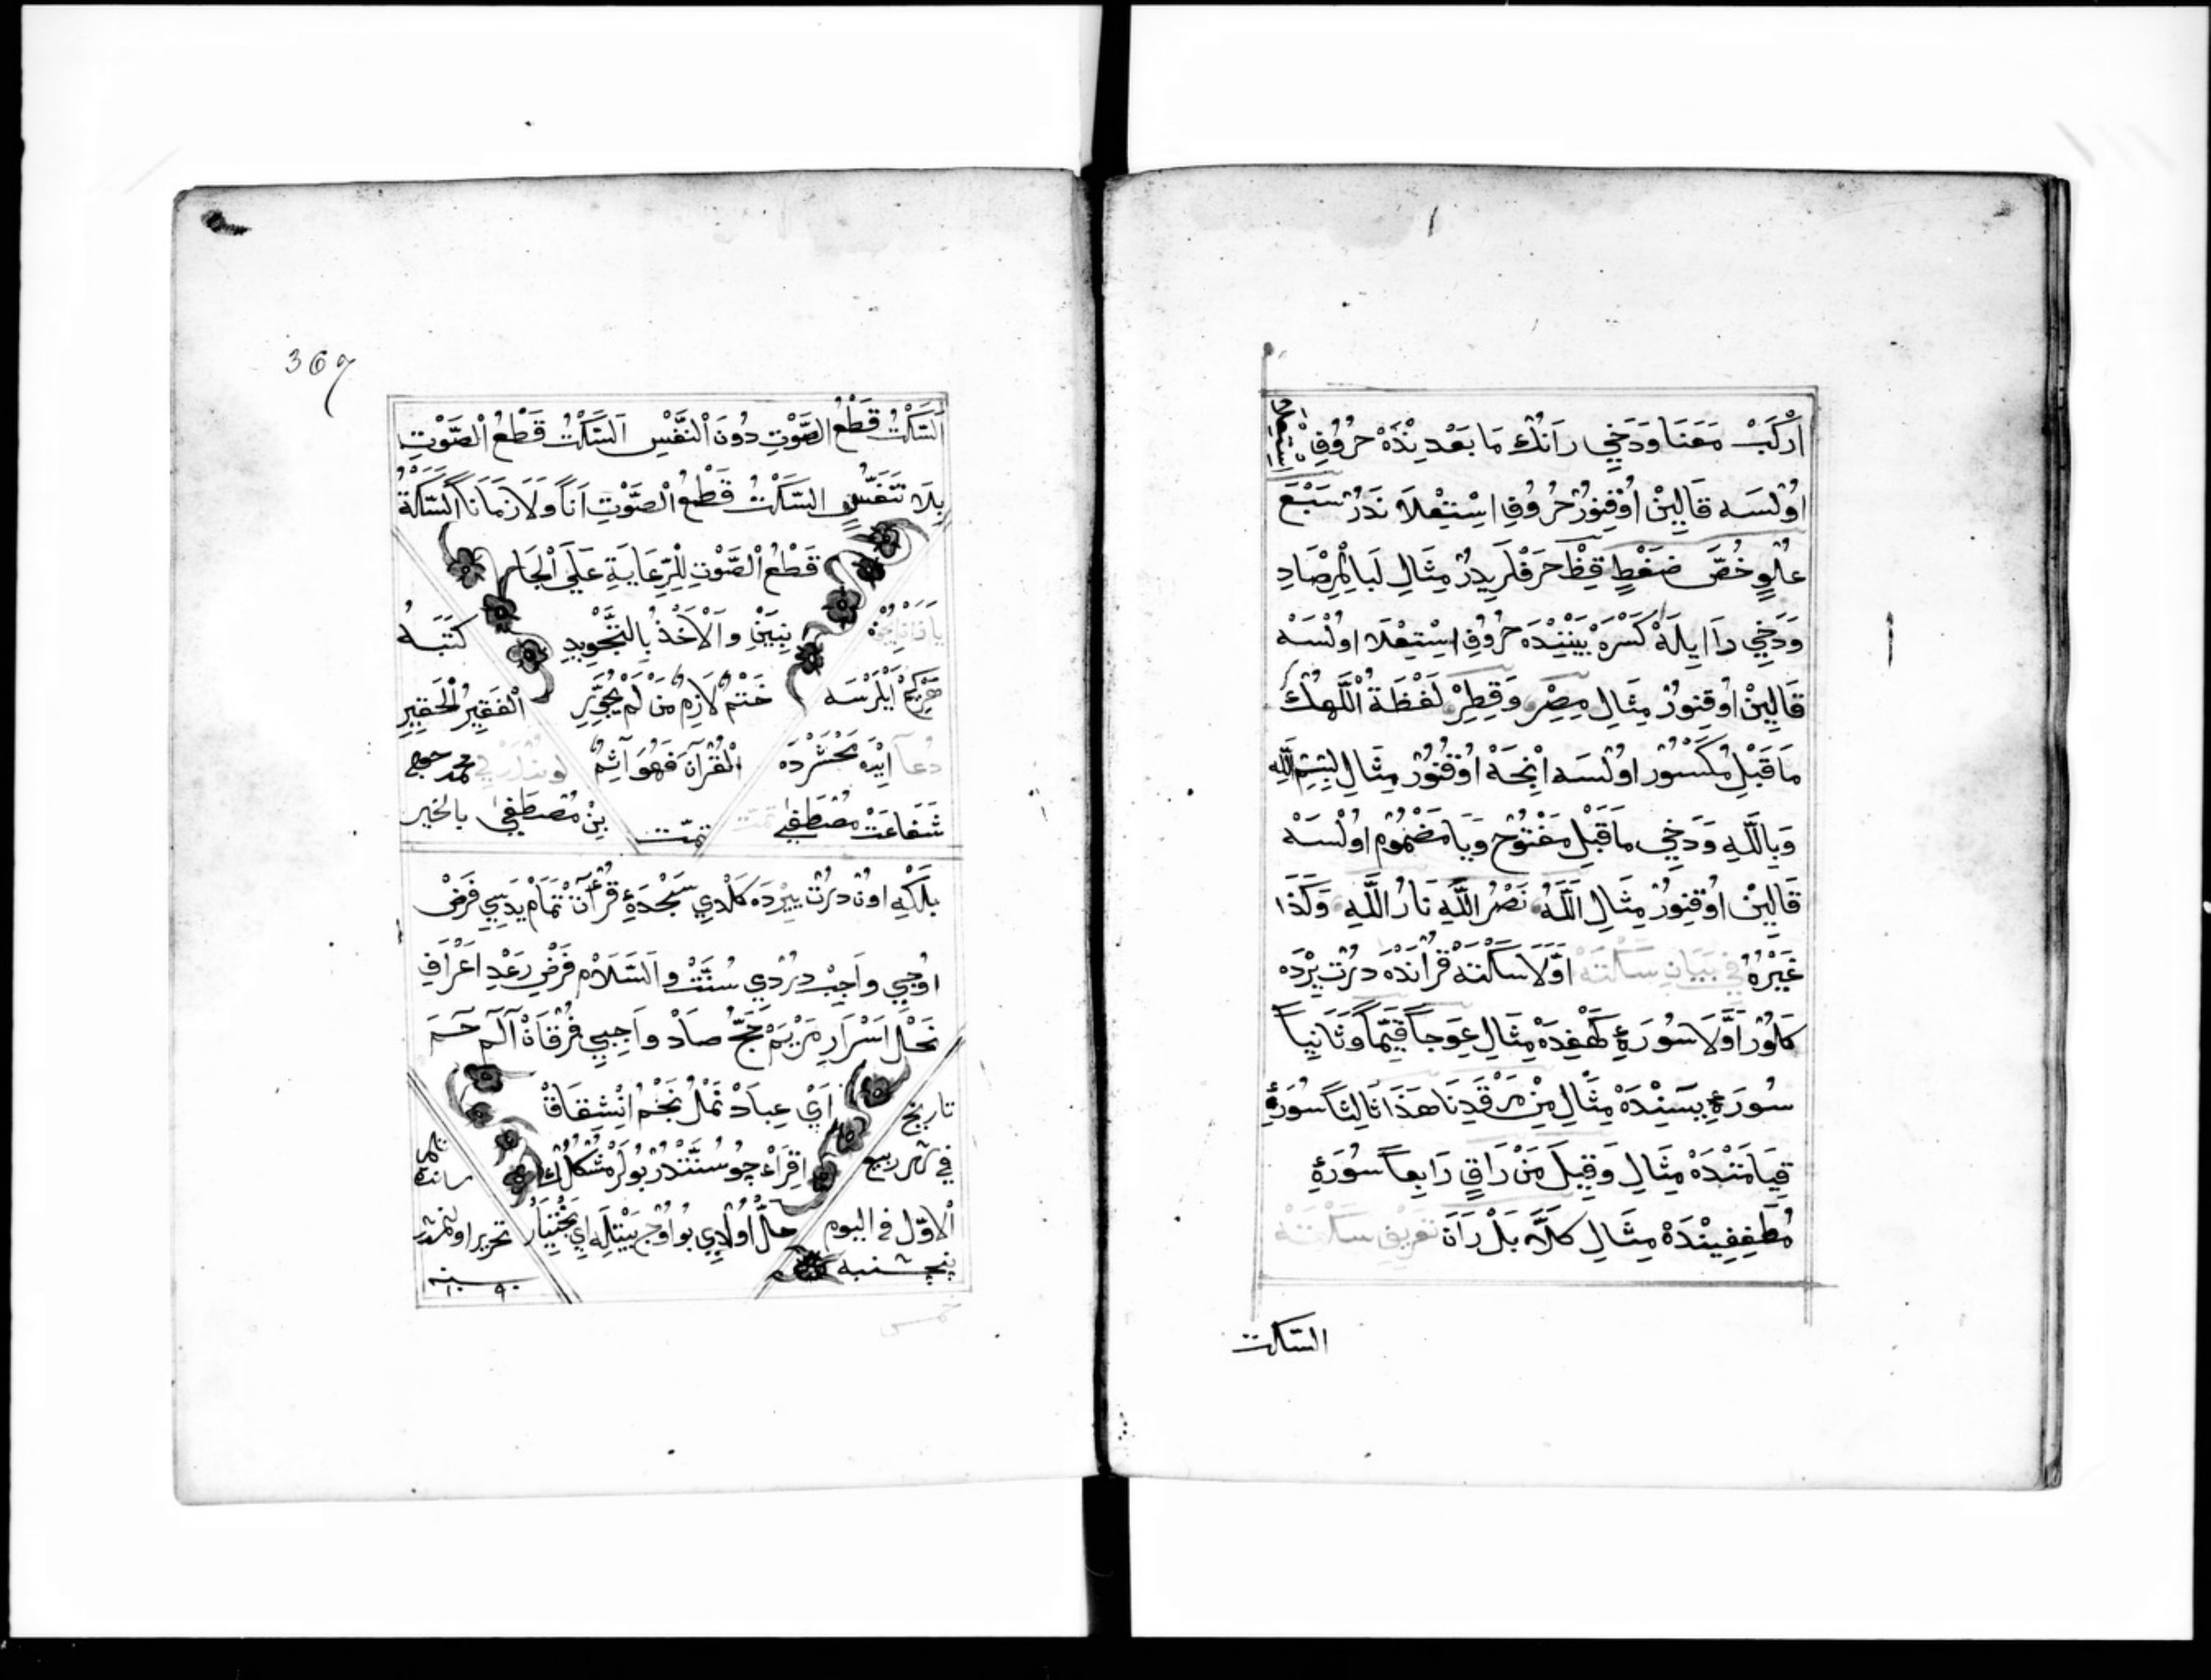 اَرْكَبْ مَعَنَا وَدَخِي رَانُكْ مَا بَعْدِنْدَهْ حُرُوفِ اِسْتِعْلَا
اوُلْسَه قَالِينْ اُوقُنُورْ حُرُوفِ اِسْتِعْلَا نَدُرْ سَبْعَ
عُلْوٍ خُصَّ ضَغْطٍ قِظْ حَرْفْلَرِيدُرْ مِثَالِ لَبِالْمِرْصَادِ
وَدَخِي رَا اِيلَهْ كَسْرَهْ بَيْنِنْدَهْ حُرُوفِ اِسْتِعْلَا اوُلْسَهْ
قَالِينْ اُوقِنُورْ مِثَالِ مِصْرِ وَقِطْرِ لَفْظَةُ اللّٰهُكْ
مَا قَبْلِ مَكْسُورْ اوُلْسَه اِنْجَهْ اُوقُنُورْ مِثَالِ بِسْمِ اللّٰهِ
وَبِاللّٰهِ وَدَخِي مَا قَبْلِ مَفْتُوحْ وَيَا مَضْمُومْ اوُلْسَهْ
قَالِينْ اُوقِنُورْ مِثَالِ اَللّٰهُ نَصْرُ اللّٰهِ نَارُ اللّٰهِ وَكَذَا
غَيْرُهُ فِي بَيَانِ سَكْتَهْ اَوَّلَا سَكْتَه قُرْاٰنْدَهْ دُرْتْ يِرْدَه
كَلُورْ اَوَّلَا سُورَهِٔ كَهْفِدَهْ مِثَالِ عِوَجاً قَيِّماً وَثَانِياً
سُورَهِٔ يٰسِنْدَهْ مِثَالِ مِنْ مَرْقَدِنَا هٰذَا ثَالِثاً سُورَهِٔ
قِيَامَتْدَهْ مِثَالِ وَقِيلَ مَنْ رَاقٍ رَابِعاً سُورَهِٔ
مُطَفِّفِينْدَهْ مِثَالِ كَلَّا بَلْ رَانَ تَعْرِيفِ سَكْتَهْ
السّكت
367
اَلسَّكْتُ قَطْعُ الصَّوْتِ دُونَ النَّفْسِ اَلسَّكْتُ قَطْعُ الصَّوْتِ
بِلَا تَنَفُّسٍ السَّكْتُ قَطْعُ الصَّوْتِ اٰناً وَلَا زَمَاناً اَلسَّكْتَةُ
قَطْعُ الصَّوْتِ لِلرِّعَايَةِ عَلَى الْجَا
نِبَيْنِ وَالْاَخْذُ بِالتَّجْوِيدِ
كَتَبَهُ
هَرْكِمْ اَيْلَرْسَه
حَتْمٌ لَازِمٌ مَنْ لَمْ يُجَوِّدِ
اَلْفَقِيرُ الْحَقِيرِ
دُعَا اَيْدَه مَحْشَرْدَه
الْقُرْاٰنَ فَهُوَ اٰثِمٌ
شَفَاعَتْ مُصْطَفٰى
تمّت
بِنْ مُصْطَفٰى بالخير
بَلْكِه اوُنْ دُرْتْ يِرْدَه كَلْدِي سَجْدَهِٔ قُرْاٰنْ تَمَامْ يَدِيسِي فَرْضْ
اوُچِي وَاجِبْ دُرْدِي سُنَّتْ وَالسَّلَامْ فَرْضِ رَعْدِ اَعْرَافِ
نَحْلِ اَسْرَارِ مَرْيَمْ حَجُّ صَادْ وَاجِبِي فُرْقَانْ اٰلٓمٓ حٰمٓ
اَيْ عِبَادْ نَمْلُ نَجْمُ اِنْشِقَاقْ
تاريخ
اِقْرَاْ چُو سُنَّتْدُرْ بُولَرْ مُشْكِلُكْ
في شهر ربيع
حَلّْ اُولْدِي بُو اوُچْ بَيْتِلَه اَيْ بَخْتِيَارْ
الاوّل في اليوم
پنجشنبه
تحرير اولنمشدر
سنه